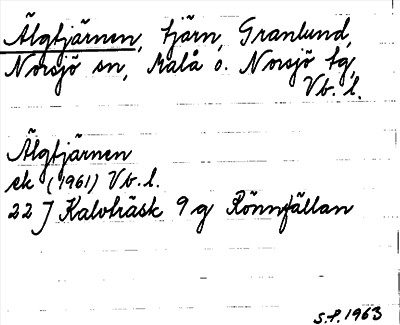 Älgtjärnen, tjärn, Granlund,
Norsjö sn, Malå o. Norsjö tg,
Vb. l.
Älgtjärnen
ek (1961) Vb. l.
22 J Kalvträsk 9 g Rönnfällan
S.P. 1963